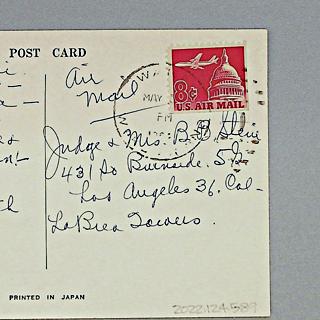 POST CARD
Air
Mail
MAY
PM
8¢
U.S. AIR MAIL
Judge & Mrs. B
431 So Burnside.
Los Angeles 36. Cal-
La Brea Towers.
PRINTED IN JAPAN
2022.124.589